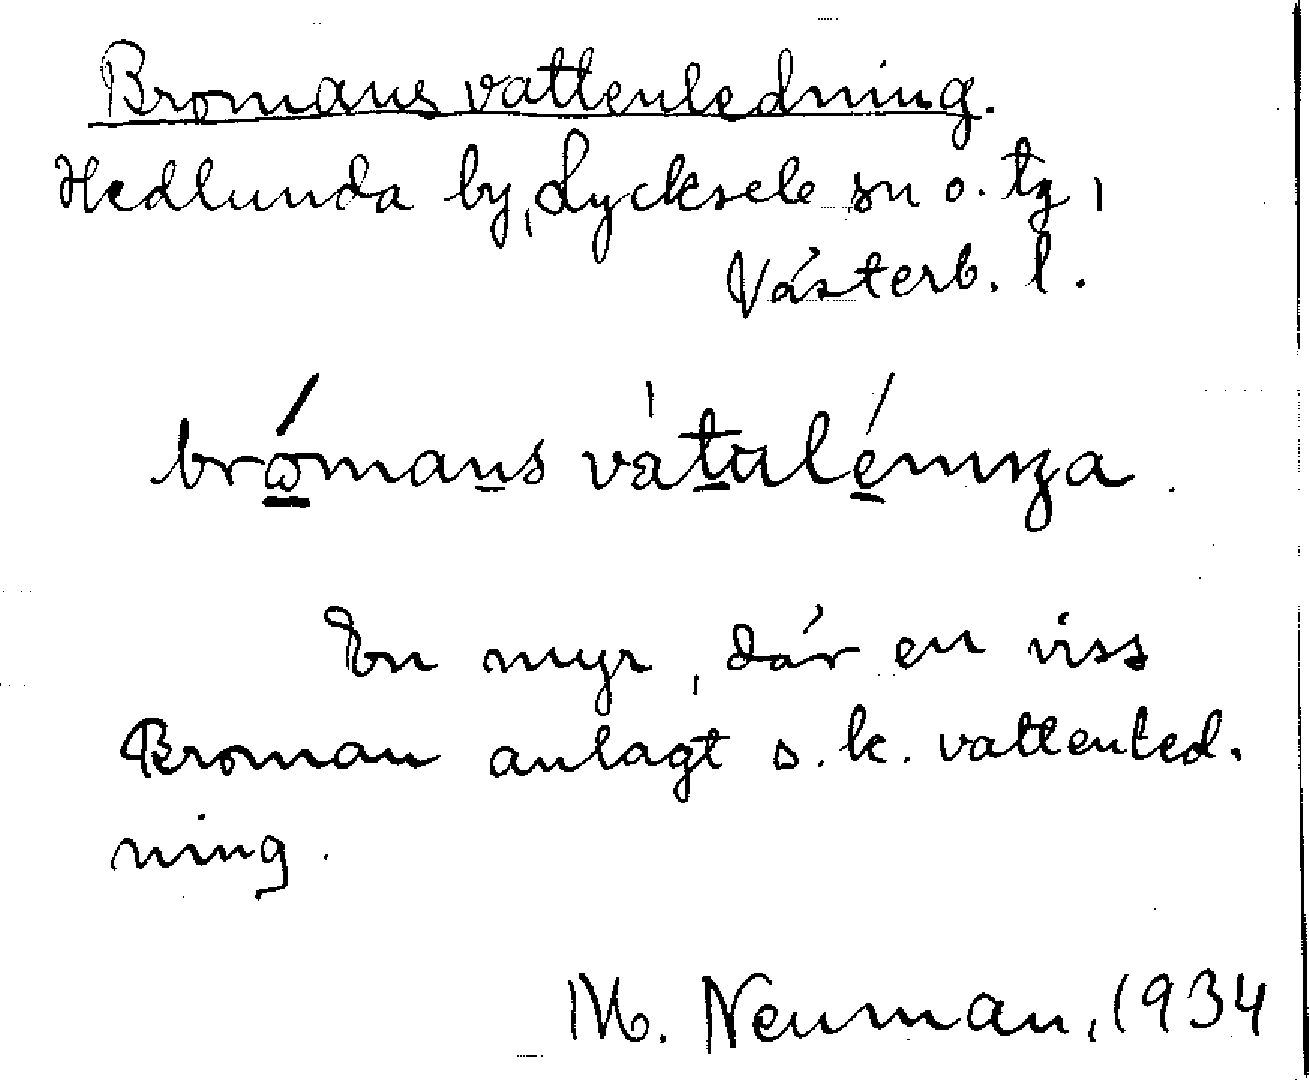 Bromans vattenledning.
Hedlunda by, Lycksele sn o. tg,
Västerb. l.
brómans
En myr, där en viss
Broman anlagt s.k. vattenled.
ning.
M. Neuman, 1934